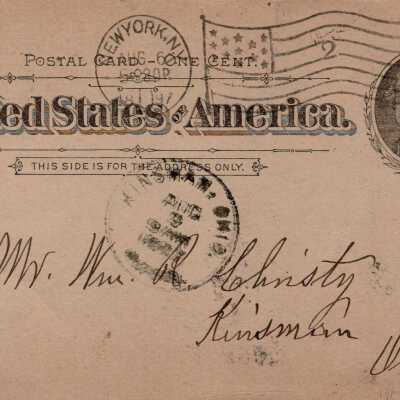 NEW YORK, N.Y.
AUG 6
2
POSTAL CARD – ONE CENT.
ed States of America.
THIS SIDE IS FOR THE ADDRESS ONLY.
KINSMAN, OHIO.
AUG
Mr. Wm. R. Christy
Kinsman